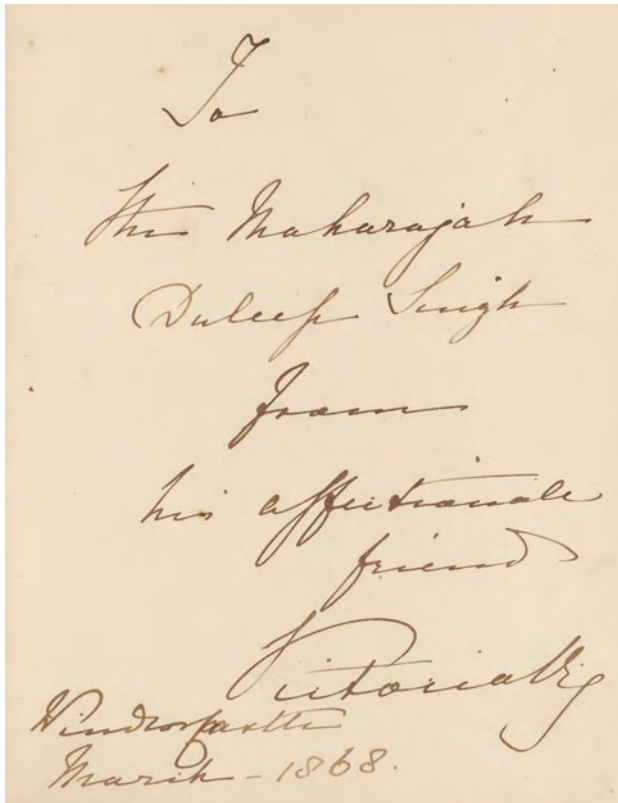 To
The Maharajah
Duleep Singh
from
his affectionate
friend
Victoria R
Windsor Castle
March - 1868.